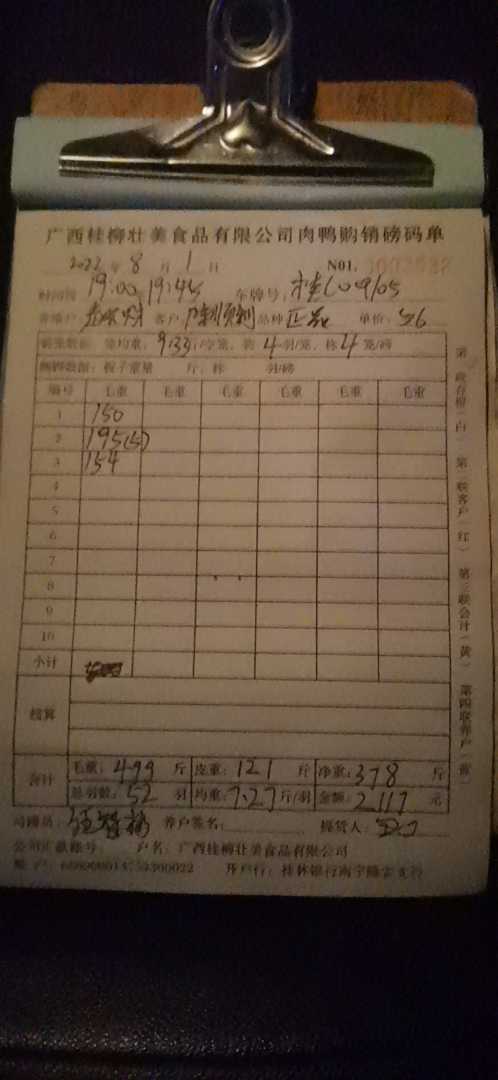 广西桂柳壮美食品有限公司肉鸭购销磅码单
2022年8月1日 N01.
时间 19:00 19:45 车牌号:桂C09105
养殖户: 客户:陈顺利 品种 正品 单价:5.6
笼重数据:笼均重:9.33斤/空笼,装4羽/笼,称4笼/磅
斤,称 羽/磅
编号 毛重 毛重 毛重 毛重 毛重 毛重
1 150
2 195(5)
3 154
4
5
6
7
8
9
10
小计
结算
合计 毛重:499斤 皮重:121斤 净重:378斤
总羽数:52羽 均重:7.27斤/羽 金额:2117元
司磅员: 养户签名: 提货人:
公司汇款账号: 户名:广西桂柳壮美食品有限公司
账户: 开户行:桂林银行南宁隆安支行
第一联存根(白) 第二联客户(红) 第三联会计(黄) 第四联养户(蓝)